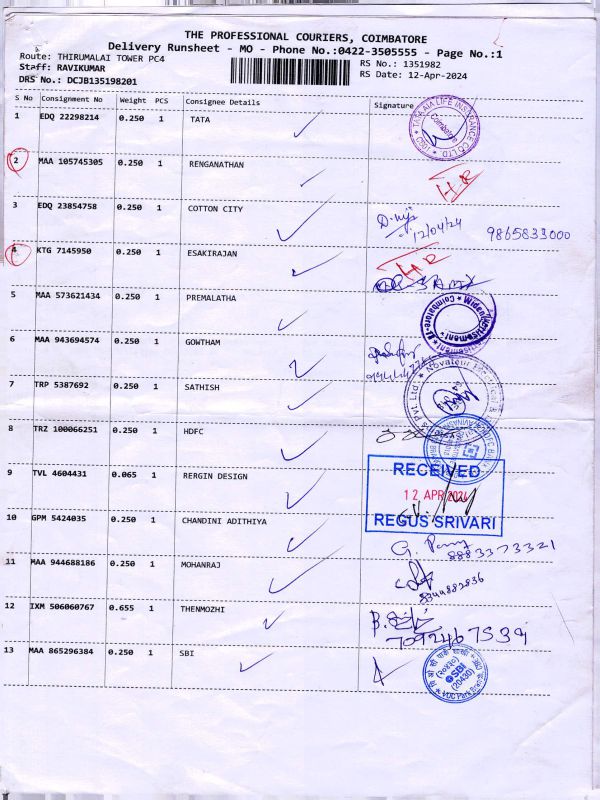 THE PROFESSIONAL COURIERS, COIMBATORE
Delivery Runsheet - MO - Phone No.:0422-3505555 - Page No.:1
Route: THIRUMALAI TOWER PC4
RS No.: 1351982
Staff: RAVIKUMAR
RS Date: 12-Apr-2024
DRS No.: DCJB135198201
S No Consignment No Weight PCS Consignee Details Signature
1 EDQ 22298214 0.250 1 TATA
TATA AIA LIFE INSURANCE CO LTD
Coimbatore
2 MAA 105745305 0.250 1 RENGANATHAN
3 EDQ 23854758 0.250 1 COTTON CITY
12/04/24 9865833000
4 KTG 7145950 0.250 1 ESAKIRAJAN
5 MAA 573621434 0.250 1 PREMALATHA
6 MAA 943694574 0.250 1 GOWTHAM
7 TRP 5387692 0.250 1 SATHISH
8 TRZ 100066251 0.250 1 HDFC
9 TVL 4604431 0.065 1 RERGIN DESIGN
RECEIVED
12 APR 2024
REGUS SRIVARI
10 GPM 5424035 0.250 1 CHANDINI ADITHIYA
8883373321
11 MAA 944688186 0.250 1 MOHANRAJ
12 IXM 506060767 0.655 1 THENMOZHI
13 MAA 865296384 0.250 1 SBI
SBI
(20430)